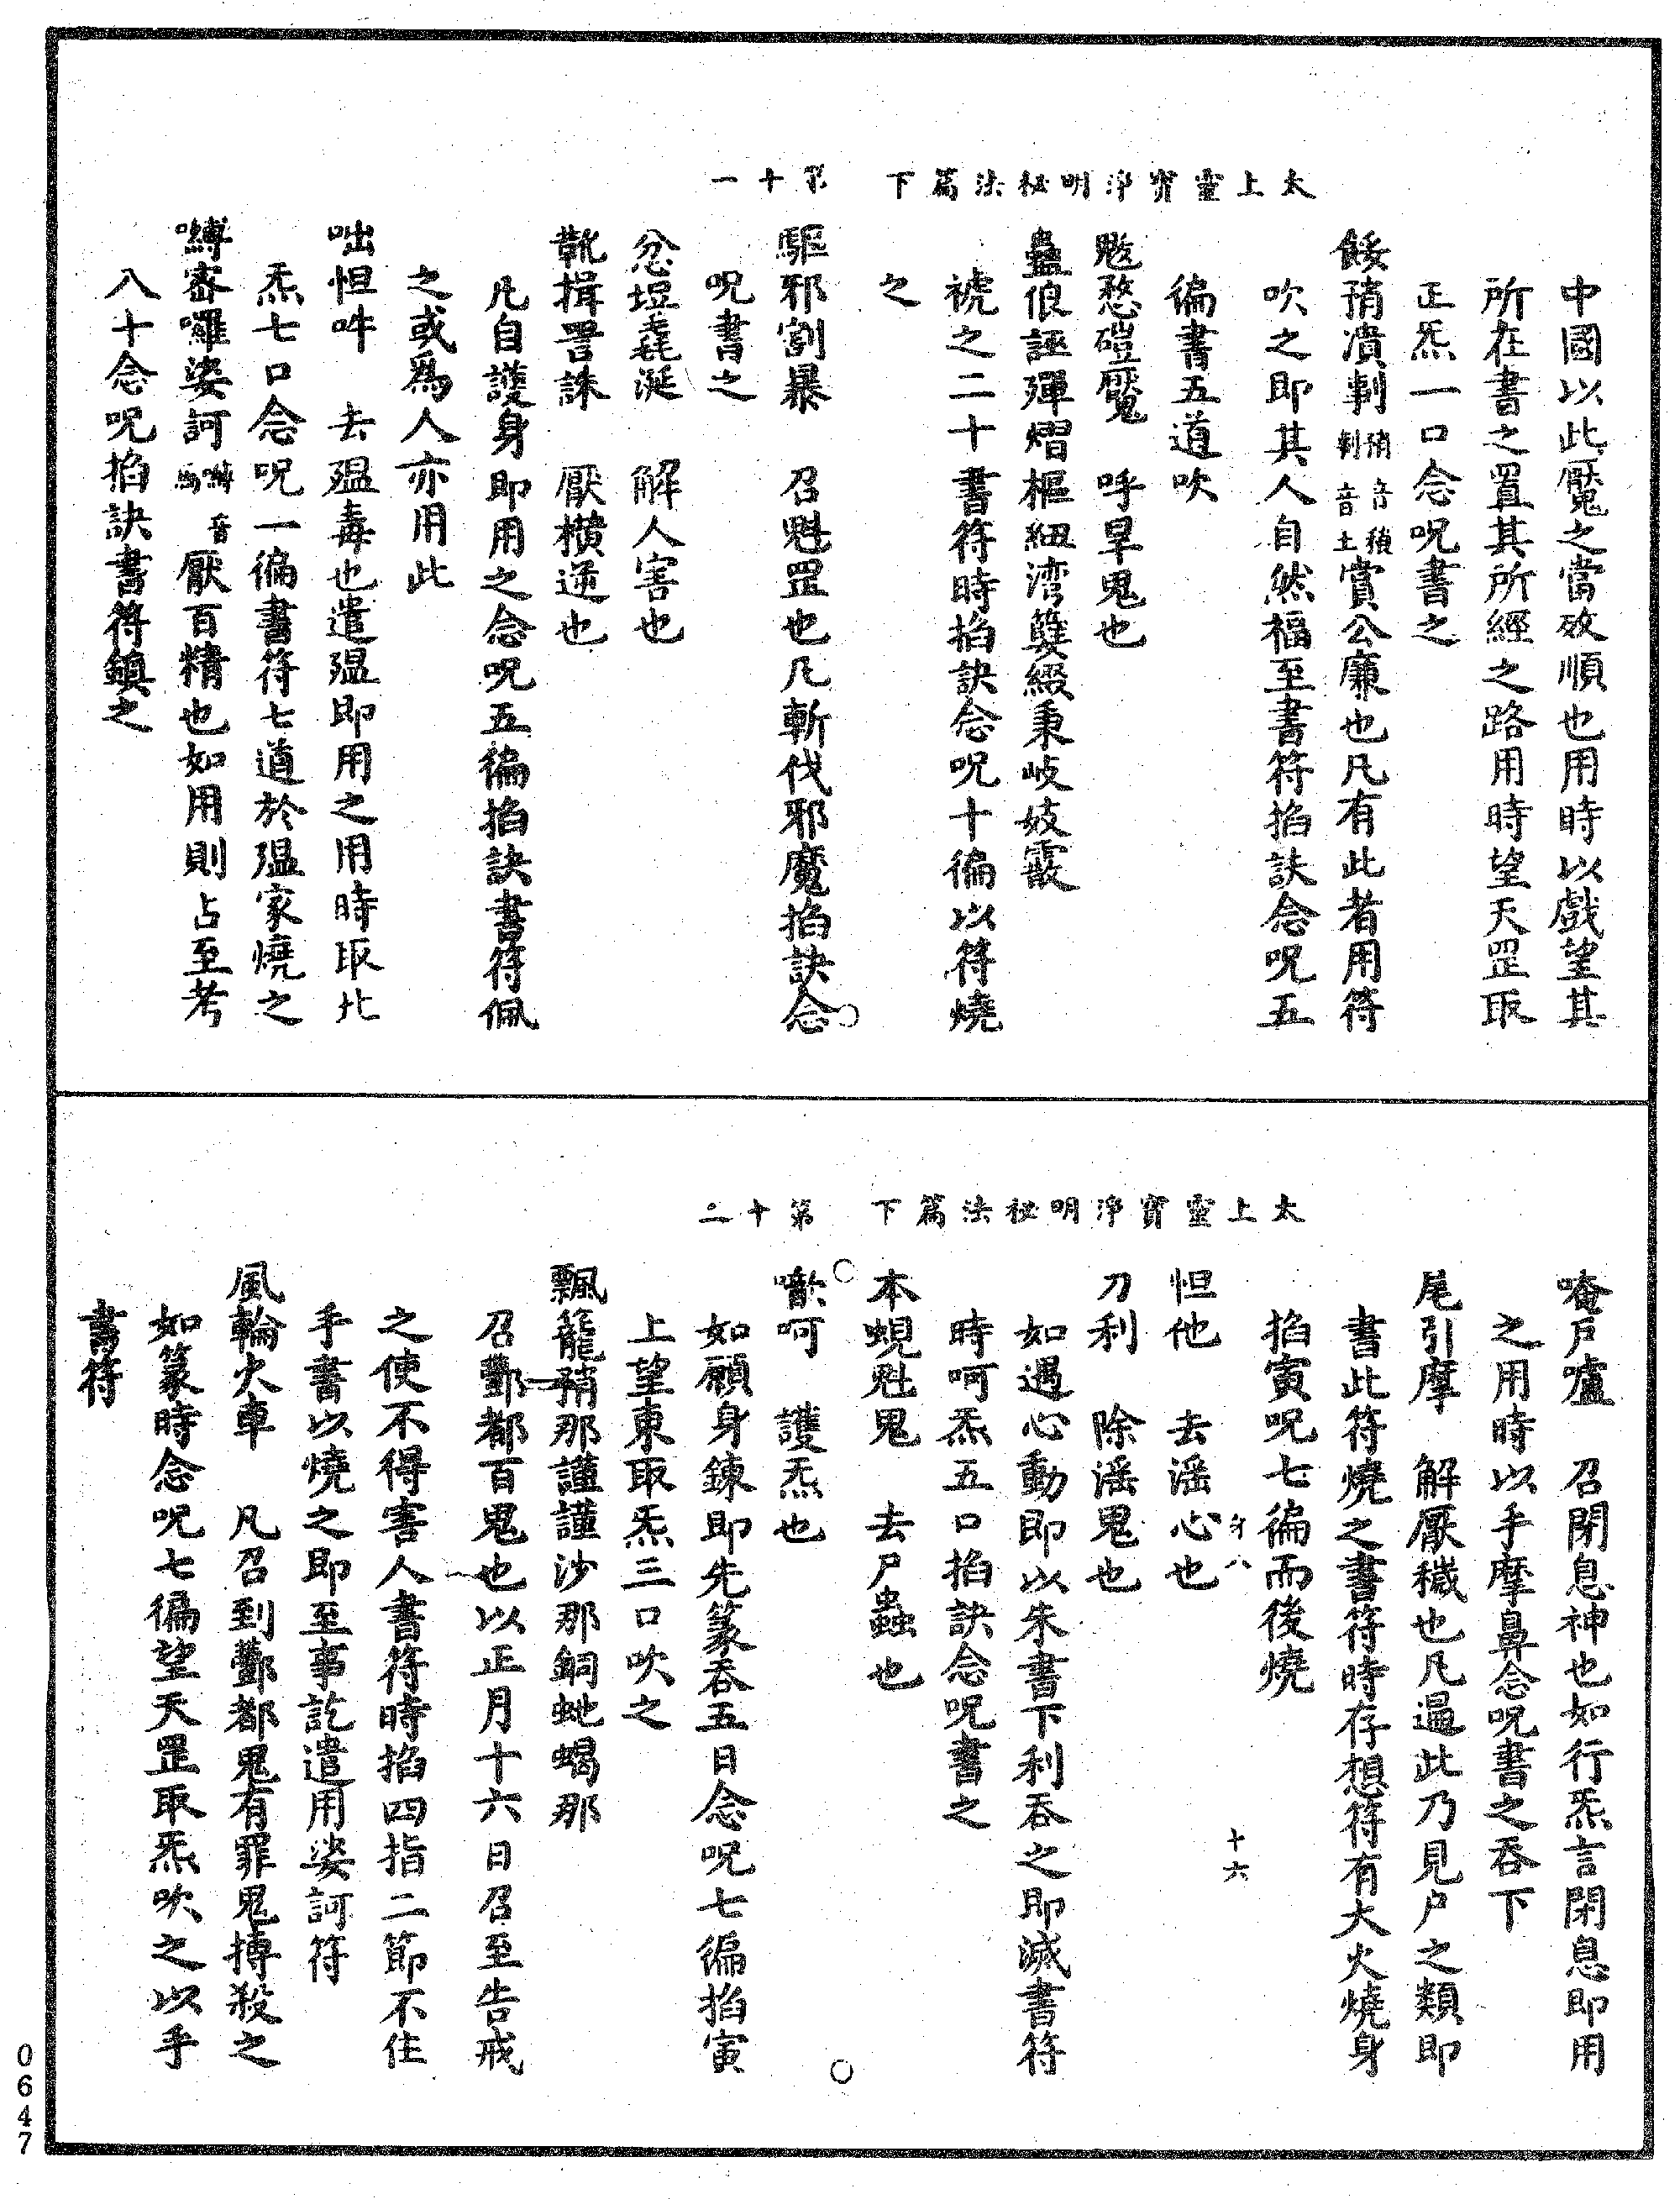 太上靈寳淨明秘法篇下　第十一
中國以此魘之當效順也用時以戲望其
所在書之置其所經之路用時望天罡取
正炁一口念呪書之
餒矟潰剌矟音積剌音土賞公廉也凡有此者用符
吹之即其人自然福至書符掐訣念呪五
徧書五道吹
魃愁磑魘　呼旱鬼也
蠱俍誣殫熠樞紐湾籆綴秉岐妓霰
褫之二十書符時掐訣念呪十徧以符燒
之
驅邪割暴　召魁罡也凡斬伐邪魔掐訣念
呪書之
忿垣毳涎　解人害也
靴揖詈誅　厭橫逆也
凡自護身即用之念呪五徧掐訣書符佩
之或爲人亦用此
咄怛吽　去瘟毒也遣瘟即用之用時取北
炁七口念呪一徧書符七道於瘟家燒之
嚩嚓囉娑訶　音厭百精也如用則占至考
八十念呪掐訣書符鎮之
太上靈寳淨明秘法篇下　第十二
唵戶嚧　召閉息神也如行炁言閉息即用
之用時以手摩鼻念呪書之吞下
尾引摩　解厭穢也凡遍此乃見户之類即
書此符燒之書符時存想符有大火燒身
掐寅呪七徧而後燒
身八　十六
怛他　去滛心也
刀利　除滛鬼也
如遇心動即以朱書下利吞之即滅書符
時呵炁五口掐訣念呪書之
本蜆魁鬼　去尸蟲也
歕呵　護炁也
如顧身鍊即先篆吞五日念呪七徧掐寅
上望東取炁三口吹之
飄籠矟那謹謹沙那銅虵蝎那
召酆都百鬼也以正月十六日召至告戒
之使不得害人書符時掐四指二節不住
手書以燒之即至事訖遣用娑訶符
風輪火車　凡召到酆都鬼有罪鬼搏殺之
如篆時念呪七徧望天罡取炁吹之以手
書符
0647